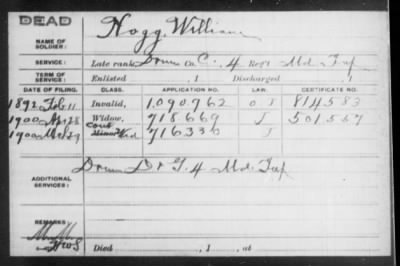 DEAD
NAME OF SOLDIER: Hogg, William
SERVICE: Late rank Drum Co. C, 4 Reg't Md. Inf
TERM OF SERVICE: Enlisted , 1 Discharged , 1
DATE OF FILING. CLASS. APPLICATION NO. LAW. CERTIFICATE NO.
1892 Feb 11 Invalid, 1090762 814583
1900 Apr 28 Widow, 718669 J 501557
1900 Cont Wid 716330 J
ADDITIONAL SERVICES: Drum Md. Inf
REMARKS:
Died , 1 , at